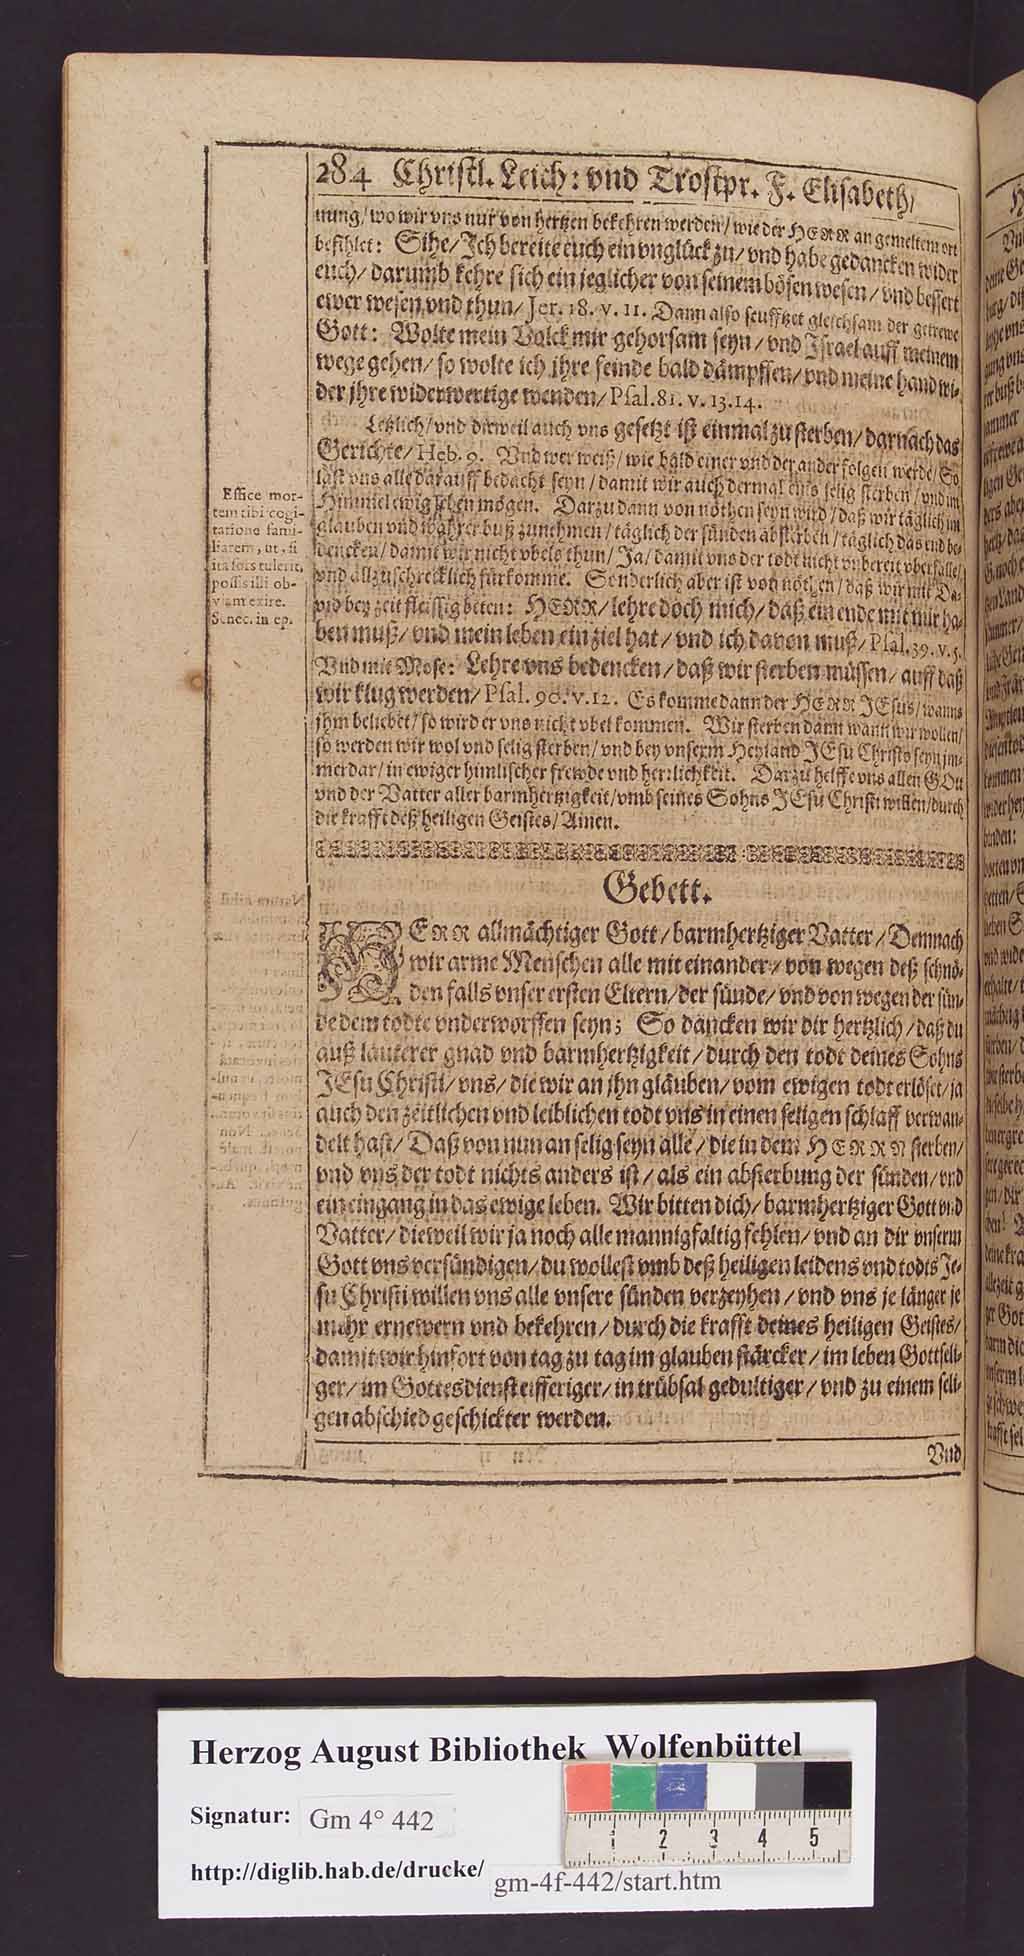 284 Christl. Leich: vnd Trostpr. F. Elisabeth/
nung/ wo wir vns nur von hertzen bekehren werden/ wie der HERR an gemeltem ort
befihlet: Sihe/ Ich bereite euch ein vnglück zu/ vnd habe gedancken wider
euch/ darumb kehre sich ein jeglicher von seinem bösen wesen/ vnd bessert
ewer wesen vnd thun/ Jer. 18. v. 11. Dann also seufftzet gleichsam der getrewe
Gott: Wolte mein Volck mir gehorsam seyn/ vnd Israel auff meinem
wege gehen/ so wolte ich jhre feinde bald dämpffen/ vnd meine hand wi-
der jhre widerwertige wenden/ Psal. 81. v. 13. 14.
Letzlich/ vnd dieweil auch vns gesetzt ist einmal zu sterben/ darnach das
Gerichte/ Heb. 9. Vnd wer weiß/ wie bald einer vnd der ander folgen werde/ So
laßt vns alle darauff bedacht seyn/ damit wir auch dermal eins selig sterben/ vnd im
Himmel ewig leben mögen. Darzu dann von nöthen seyn wird/ daß wir täglich im
glauben vnd wahrer buß zunehmen/ täglich der sünden absterben/ täglich das end be-
dencken/ damit wir nicht vbels thun/ Ja/ damit vns der todt nicht vnbereit vberfalle/
vnd allzuschrecklich fürkomme. Sonderlich aber ist von nöthen/ daß wir mit Da-
vid bey zeit fleissig beten: HERR/ lehre doch mich/ daß ein ende mit mir ha-
ben muß/ vnd mein leben ein ziel hat/ vnd ich davon muß/ Psal. 39. v. 5.
Vnd mit Mose: Lehre vns bedencken/ daß wir sterben müssen/ auff daß
wir klug werden/ Psal. 90. v. 12. Es komme dann der HERR JEsus/ wanns
jhm beliebet/ so wird er vns nicht vbel kommen. Wir sterben dann wann wir wollen/
so werden wir wol vnd selig sterben/ vnd bey vnserm Heyland JEsu Christo seyn im-
merdar/ in ewiger himlischer frewde vnd herrlichkeit. Darzu helffe vns allen GOtt
vnd der Vatter aller barmhertzigkeit/ vmb seines Sohns JEsu Christi willen/ durch
die krafft deß heiligen Geistes/ Amen.
Effice mor-
tem tibi cogi-
tatione fami-
liarem, ut, si
ita sors tulerit,
possis illi ob-
viam exire.
Senec. in ep.
Gebett.
HERR allmächtiger Gott/ barmhertziger Vatter/ Demnach
wir arme Menschen alle mit einander/ von wegen deß schnö-
den falls vnser ersten Eltern/ der sünde/ vnd von wegen der sün-
de dem todte vnderworffen seyn; So dancken wir dir hertzlich/ daß du
auß lauterer gnad vnd barmhertzigkeit/ durch den todt deines Sohns
JEsu Christi/ vns/ die wir an jhn gläuben/ vom ewigen todt erlöset/ ja
auch den zeitlichen vnd leiblichen todt vns in einen seligen schlaff verwan-
delt hast/ Daß von nun an selig seyn alle/ die in dem HERRN sterben/
vnd vns der todt nichts anders ist/ als ein absterbung der sünden/ vnd
ein eingang in das ewige leben. Wir bitten dich/ barmhertziger Gott vnd
Vatter/ dieweil wir ja noch alle mannigfaltig fehlen/ vnd an dir vnserm
Gott vns versündigen/ du wollest vmb deß heiligen leidens vnd todts Je-
su Christi willen vns alle vnsere sünden verzeyhen/ vnd vns je länger je
mehr ernewern vnd bekehren/ durch die krafft deines heiligen Geistes/
damit wir hinfort von tag zu tag im glauben stärcker/ im leben Gottseli-
ger/ im Gottesdienst eifferiger/ in trübsal gedultiger/ vnd zu einem seli-
gen abschied geschickter werden.
Vnd
Herzog August Bibliothek Wolfenbüttel
Signatur: Gm 4° 442
http://diglib.hab.de/drucke/ gm-4f-442/start.htm
1 2 3 4 5